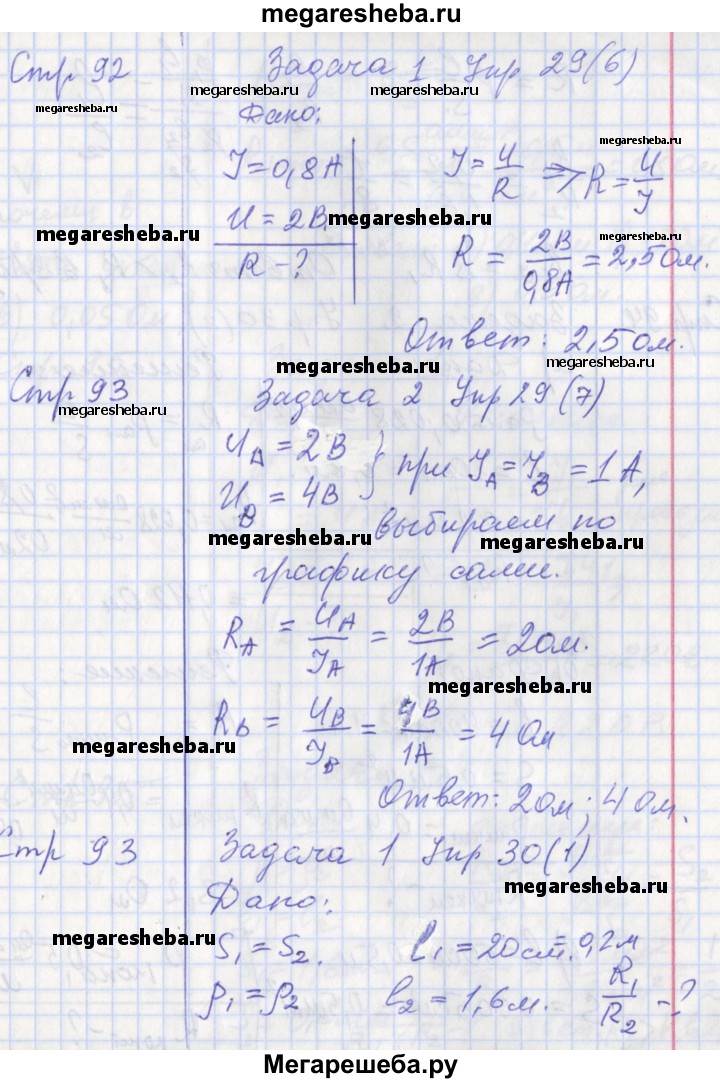 megaresheba.ru
Стр 92 Задача 1 Упр 29(6)
megaresheba.ru megaresheba.ru megaresheba.ru
Дано:
I = 0,8 А I = U/R => R = U/I
megaresheba.ru
U = 2В.
megaresheba.ru megaresheba.ru megaresheba.ru
R - ? R = 2В/0,8А = 2,5 Ом.
Ответ: 2,5 Ом.
megaresheba.ru megaresheba.ru
Стр 93 Задача 2 Упр 29 (7)
megaresheba.ru
U_A = 2В
U_B = 4В } при I_A = I_B = 1 А,
megaresheba.ru
выбираем по
megaresheba.ru megaresheba.ru
графику сами.
R_A = U_A/I_A = 2В/1А = 2 Ом.
megaresheba.ru
R_B = U_B/I_B = 4В/1А = 4 Ом
megaresheba.ru
Ответ: 2 Ом; 4 Ом.
Стр 93 Задача 1 Упр 30(1)
megaresheba.ru
Дано:
megaresheba.ru
S₁ = S₂. l₁ = 20 см. = 0,2 м
ρ₁ = ρ₂ l₂ = 1,6 м. R₁/R₂ - ?
Мегарешеба.ру